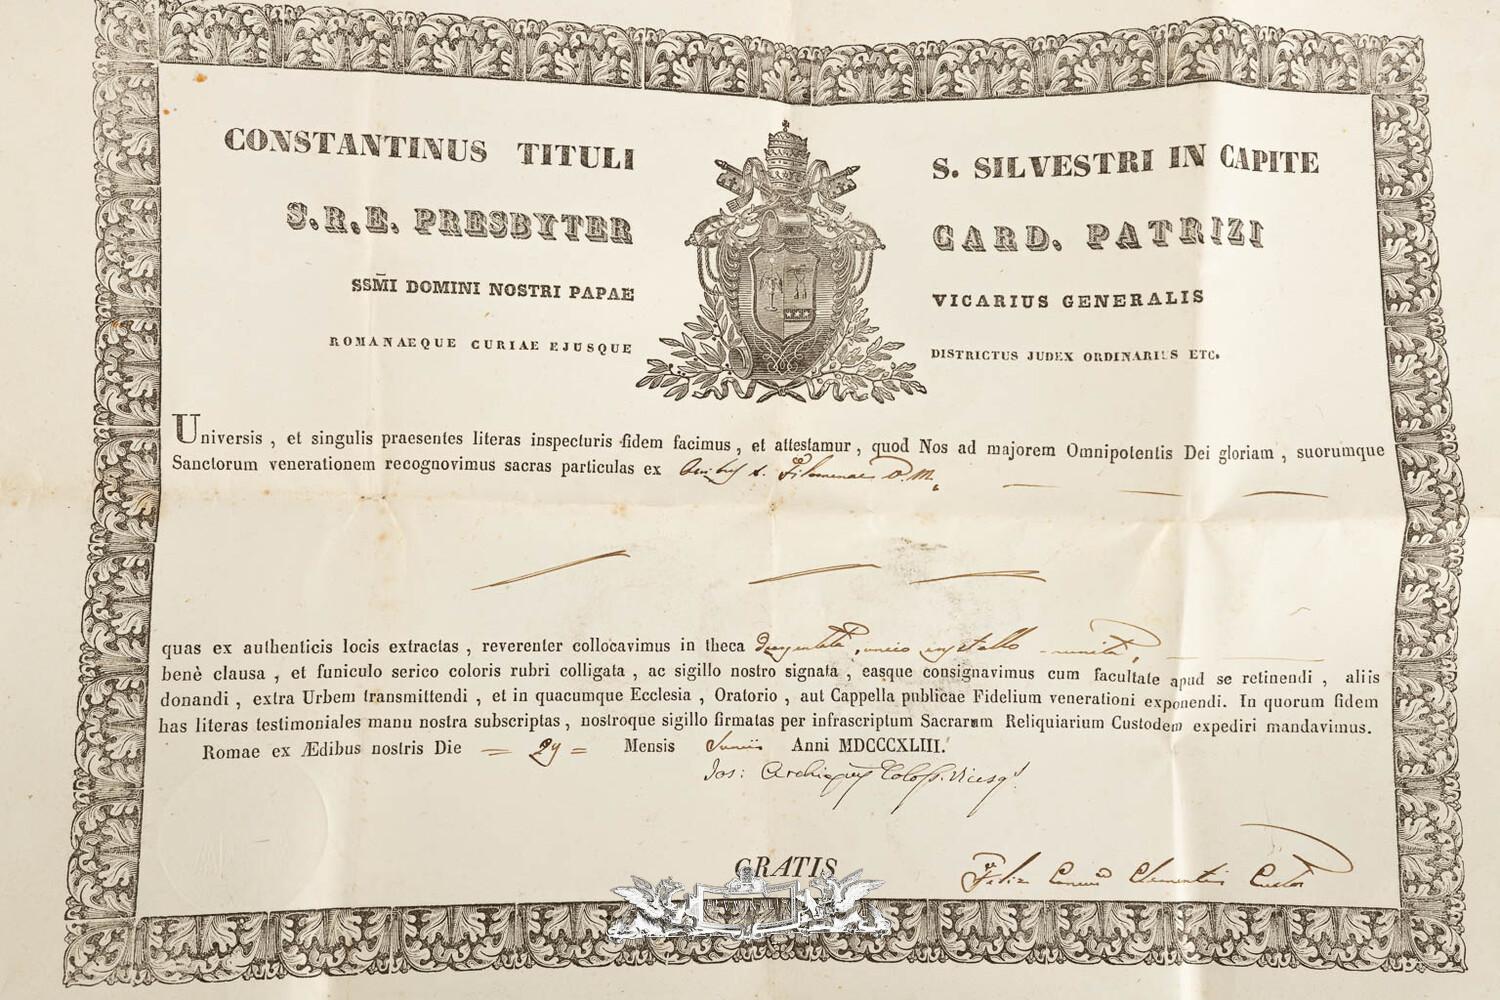 CONSTANTINUS TITULI S. SILVESTRI IN CAPITE
S.R.E. PRESBYTER CARD. PATRIZI
SSM̄I DOMINI NOSTRI PAPAE VICARIUS GENERALIS
ROMANAEQUE CURIAE EJUSQUE DISTRICTUS JUDEX ORDINARIUS ETC.
Universis, et singulis praesentes literas inspecturis fidem facimus, et attestamur, quod Nos ad majorem Omnipotentis Dei gloriam, suorumque
Sanctorum venerationem recognovimus sacras particulas ex S. Filomenae V. M.
quas ex authenticis locis extractas, reverenter collocavimus in theca unico crystallo munita,
benè clausa, et funiculo serico coloris rubri colligata, ac sigillo nostro signata, easque consignavimus cum facultate apud se retinendi, aliis
donandi, extra Urbem transmittendi, et in quacumque Ecclesia, Oratorio, aut Cappella publicae Fidelium venerationi exponendi. In quorum fidem
has literas testimoniales manu nostra subscriptas, nostroque sigillo firmatas per infrascriptum Sacrarum Reliquiarium Custodem expediri mandavimus.
Romae ex Ædibus nostris Die Mensis Junii Anni MDCCCXLIII.
Jos:
GRATIS
Felix Clementi Custos